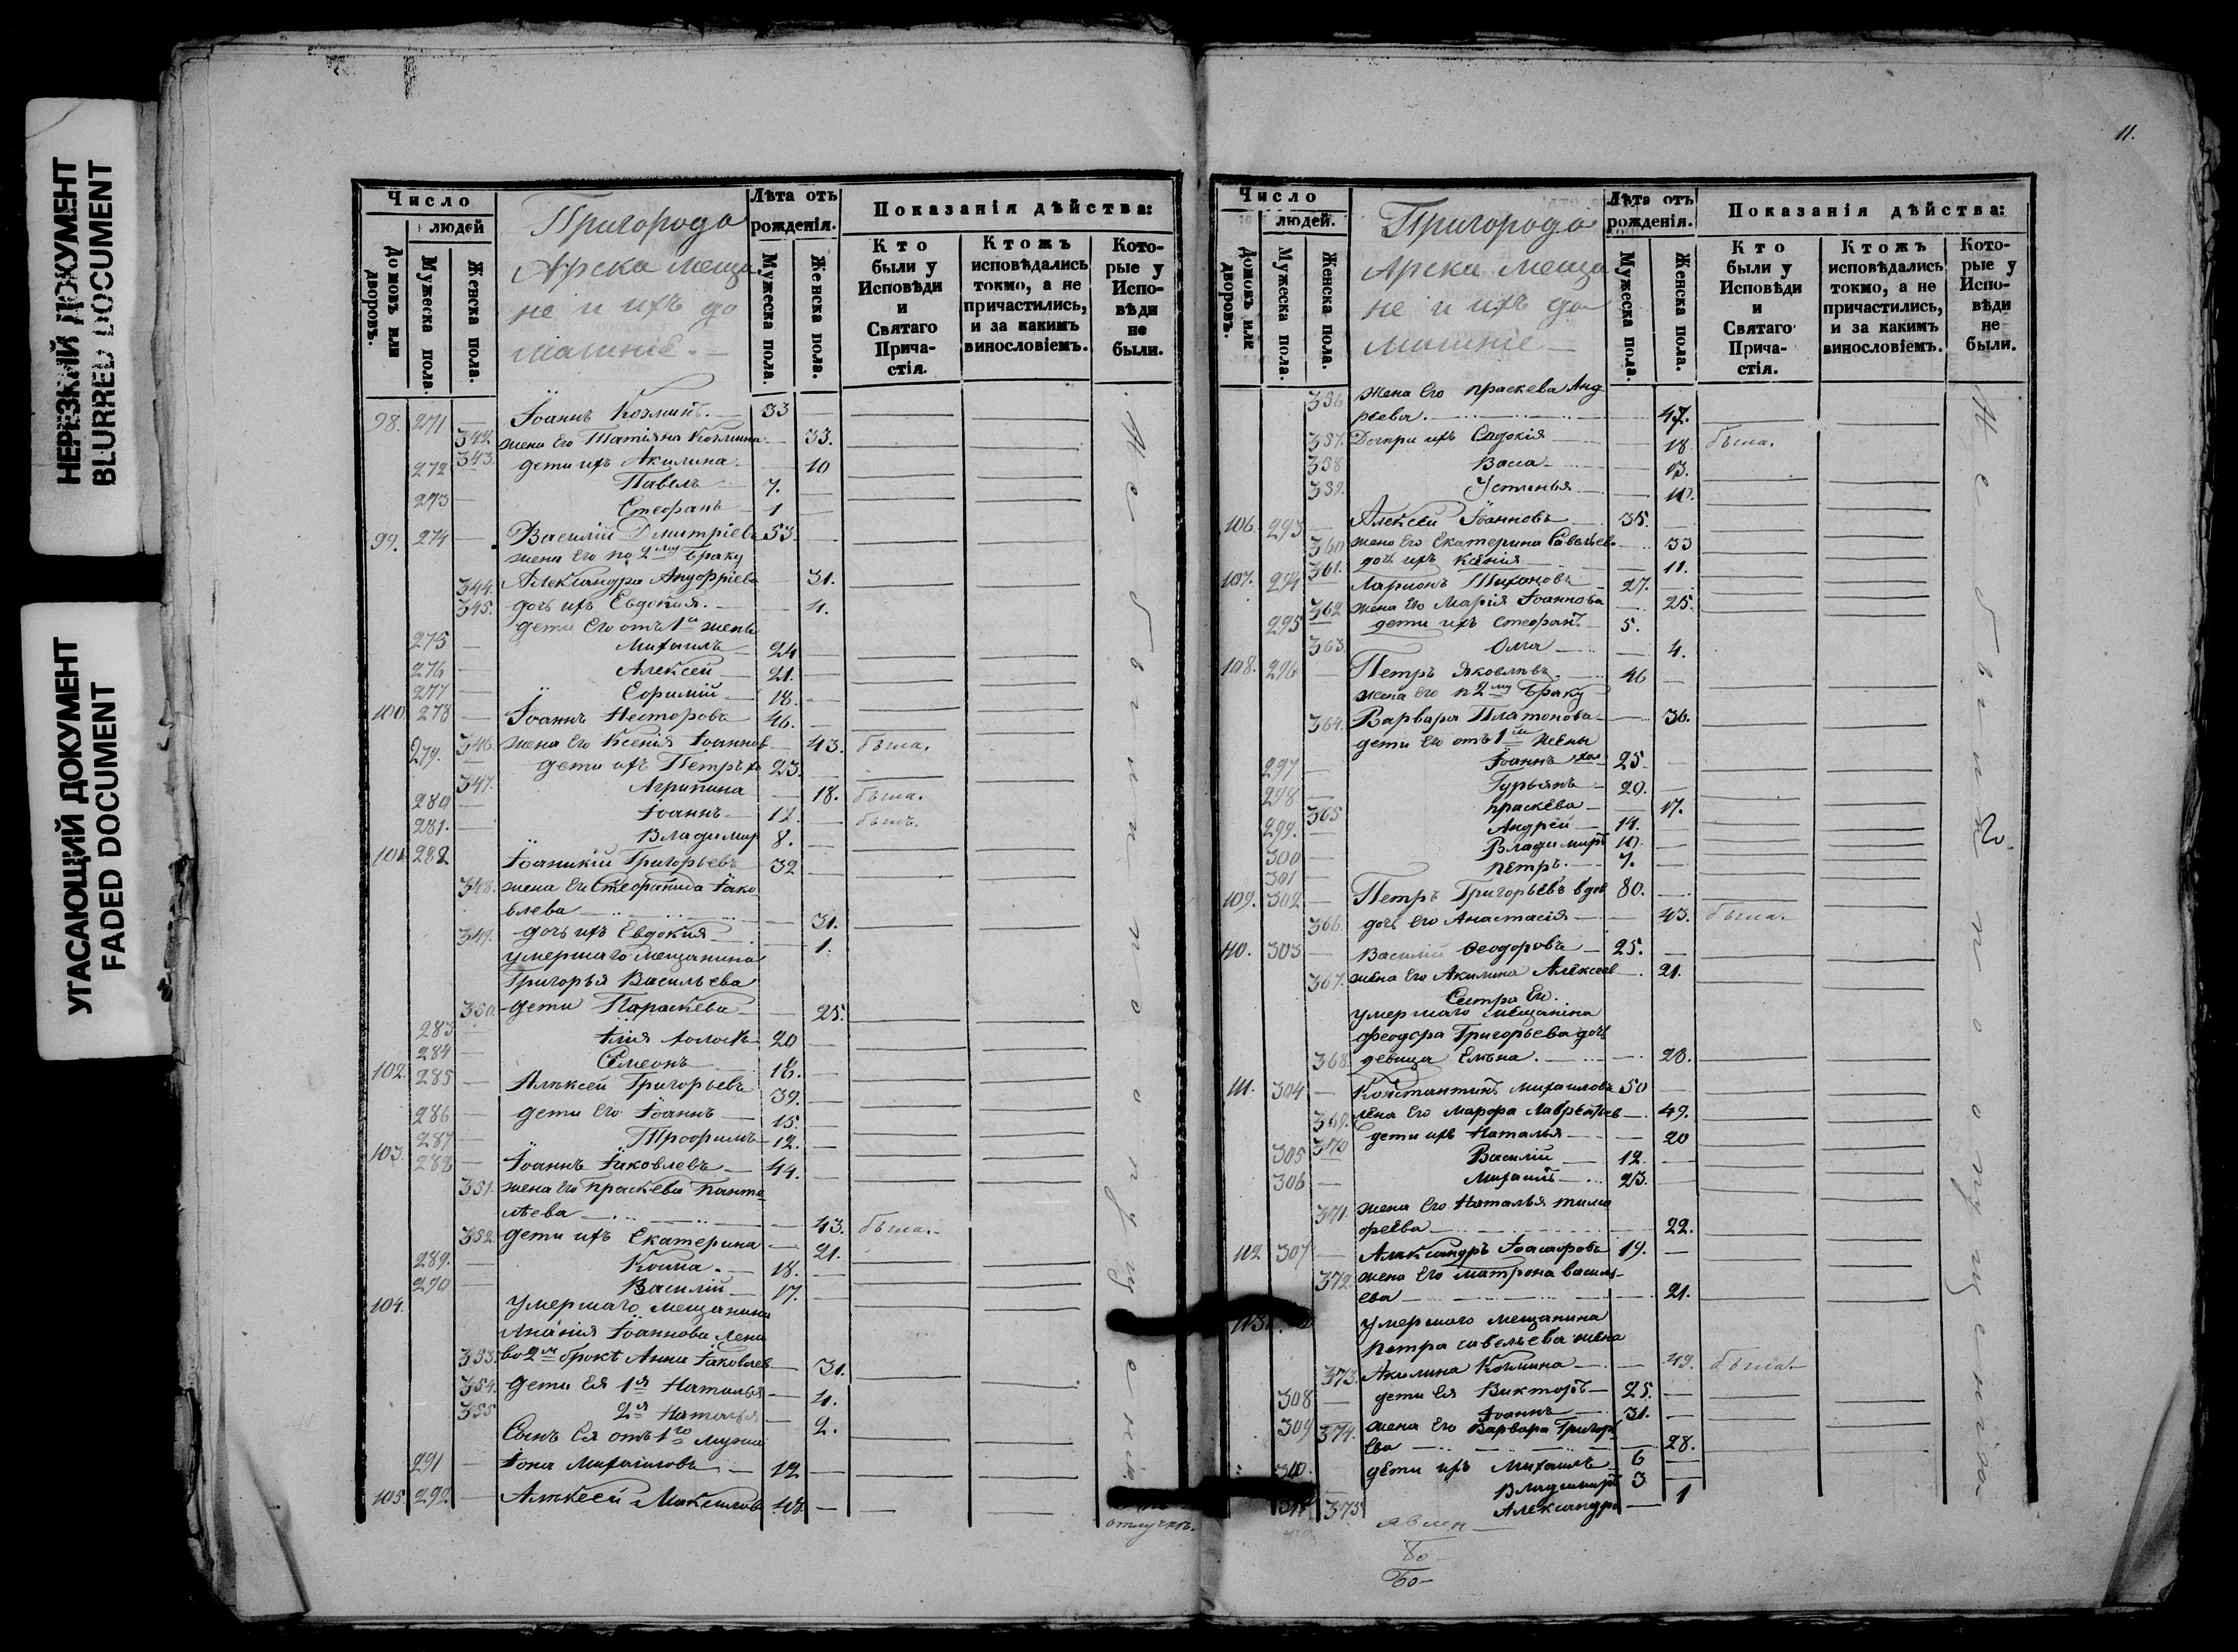 НЕРЕЗКИЙ ДОКУМЕНТ
BLURRED DOCUMENT
УГАСАЮЩИЙ ДОКУМЕНТ
FADED DOCUMENT
Число
людей
Домовъ или дворовъ.
Мужеска пола.
Женска пола.
Пригорода
Арска меща
не и ихъ до
машніе.
Лѣта отъ рожденія.
Мужеска пола.
Женска пола.
Показанія дѣйства:
Кто были у Исповѣди и Святаго Прича-стія.
Ктожъ исповѣдались токмо, а не причастились, и за какимъ винословіемъ.
Кото-рые у Испо-вѣди не были.
98. 271 Іоаннъ Козминъ. 33
342. жена его Татіяна Козмина 33.
272 343. дети ихъ Акилина 10
Павелъ 7.
273 Стефанъ 1
99. 274 Василій Дмитріевъ 53.
жена его по 2му браку
344. Александра Ануфріева 31.
345. дочь ихъ Евдокия. 4.
дети его отъ 1й жены
275 Михаилъ 24
276 Алексей 21.
277 Ефимій 18.
100. 278 Іоаннъ Несторовъ 46.
346. жена его Ксенія Іоаннов 43. была.
279. дети ихъ Петръ 23.
347. Агрипина 18. была.
280 Іоаннъ 12. былъ.
281. Владимир 8.
101. 282 Іоаникій Григорьевъ 32
348. жена его Стефанида Іако
влева 31.
349. дочь ихъ Евдокия 1.
умершаго мещанина
Григорья Васильева
350. дети Параскева 25.
283. Илия холостъ 20
284 Симеонъ 18.
102. 285 Алексей Григорьевъ 39.
286 дети его Іоаннъ 15.
287 Трофимъ 12.
103. 288 Іоаннъ Іаковлевъ 44.
351. жена его праскева Панте
лѣева 43. была.
352. дети ихъ Екатерина 21.
289. Козма. 18.
290 Василій 17.
104. умершаго мещанина
Анания Іоаннова жена
353. во 2м браке Анна Іаковлев 31.
354. дети ея 1я Наталья 4.
355 2я Наталья 2.
Сынъ ея отъ 1го мужа
291 Іона Михаиловъ 12
105. 292 Алексей Максимов 48
Не бытiи по опущенію
отлучкъ.
11.
Число
людей.
Домовъ или дворовъ.
Мужеска пола.
Женска пола.
Пригорода
Арска меща
не и ихъ до
машніе
Лѣта отъ рожденія.
Мужеска пола.
Женска пола.
Показанія дѣйства:
Кто были у Исповѣди и Святаго Прича-стія.
Ктожъ исповѣдались токмо, а не причастились, и за какимъ винословіемъ.
Кото-рые у Испо-вѣди не были.
356 жена его праскева Анд
реева. 47.
357. Дочери ихъ Евдокія 18 была.
358 Васса 13.
359. Устинья 10.
106. 293 Алексей Іоанновъ 35.
360 жена его Екатерина Савельев 33
361. дочь ихъ Ксения 11.
107. 294 Ларионъ Тихоновъ 27.
362 жена его Марія Іоаннова 25.
295 дети ихъ Стефанъ 5.
363. Олга 4.
108. 296 Петръ Яковлевъ 46
жена его п 2му браку
364. Варвара Платонова 36.
дети его отъ 1й жены
297 Іоаннъ хол 25.
298 Гурьянъ 20.
365 праскева 17.
299. Андрей 14.
300 Владимиръ 10.
301 петръ. 7.
109. 302 Петръ Григорьевъ вдов 80.
366. дочь его Анастасія 43. была.
110. 303 Василий Феодоровъ 25.
367. жена его Акилина Алексеев 21.
Сестра Ея.
умершаго мещанина
феодора Григорьева дочь
368. девица Елена. 20.
111. 304 Константинъ Михаиловъ 50
369. жена его Марфа Лаврентьев 49.
370 дети ихъ Наталья 20
305 Василій 12.
306 Михаилъ 23.
371. жена его Наталья тимо
феева 22.
112. 307 Александръ 19.
372. жена его матрона василь
ева 21.
113. умершаго мещанина
петра савельева жена
373. Акилина Козмина 49. была.
308 дети ея Викторъ 25.
309 Іоаннъ 31.
374. жена его Варвара Григор
ева 28.
310. дети ихъ Михаилъ 6
Владимиръ 3
375 Александра 1
Не бытiи по опущенію